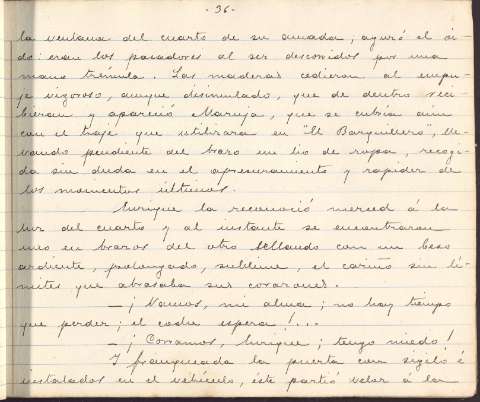 - 36. -
la ventana del cuarto de su amada; aguzó el oí-
do: eran los pasadores al ser descorridos por una
mano trémula. Las maderas cedieron al empu-
je vigoroso, aunque disimulado, que de dentro reci-
bieran y apareció Maruja, que se cubría aún
con el traje que utilizara en "El Barquillero", lle-
vando pendiente del brazo un lío de ropa, recogi-
da sin duda en el apresuramento y rapidez de
los momentos últimos.
Enrique la reconoció merced á la
luz del cuarto y al instante se encontraron
uno en brazos del otro sellando con un beso
ardiente, prolongado, sublime, el cariño sin lí-
mites que abrasaba sus corazones.
— ¡Vamos, mi alma; no hay tiempo
que perder; el coche espera!...
— ¡Corramos, Enrique; tengo miedo!
Y franqueada la puerta con sigilo é
instalados en el vehículo, éste partió veloz á la